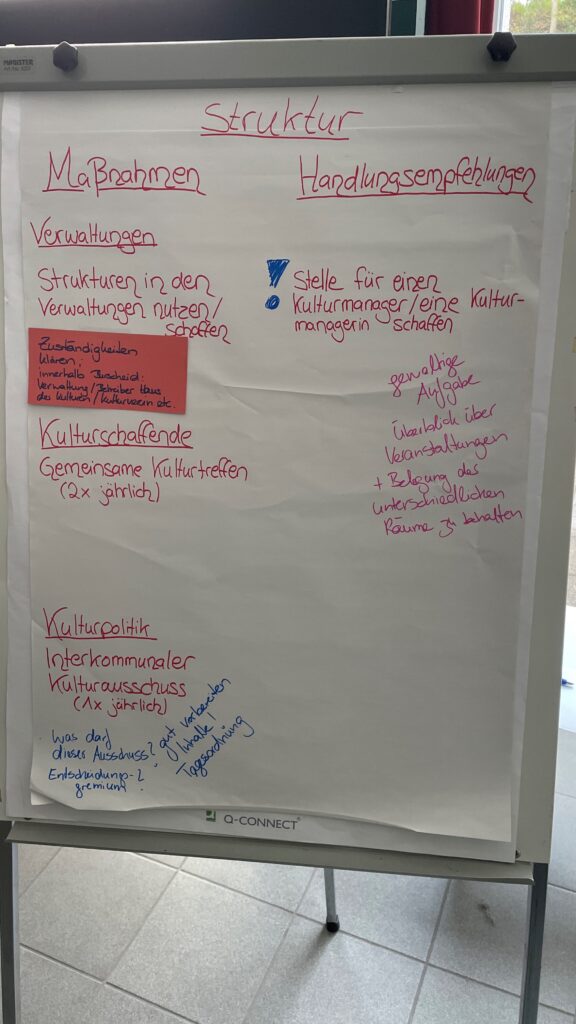 MAGISTER
Struktur
Maßnahmen
Handlungsempfehlungen
Verwaltungen
Strukturen in den
Verwaltungen nutzen/
schaffen
! Stelle für einen
Kulturmanager/eine Kultur-
managerin schaffen
Zuständigkeiten
klären;
innerhalb Burscheid:
Verwaltung/Betreiber Haus
der Kulturen/Kulturverein etc.
gewaltige
Aufgabe
Überblick über
Veranstaltungen
+ Belegung der
unterschiedlichen
Räume zu behalten
Kulturschaffende
Gemeinsame Kulturtreffen
(2x jährlich)
Kulturpolitik
Interkommunaler
Kulturausschuss
(1x jährlich)
Was darf
dieser Ausschuss?
Entscheidungs-
gremium?
gut vorbereiten
Inhalte!
Tagesordnung
Q-CONNECT®